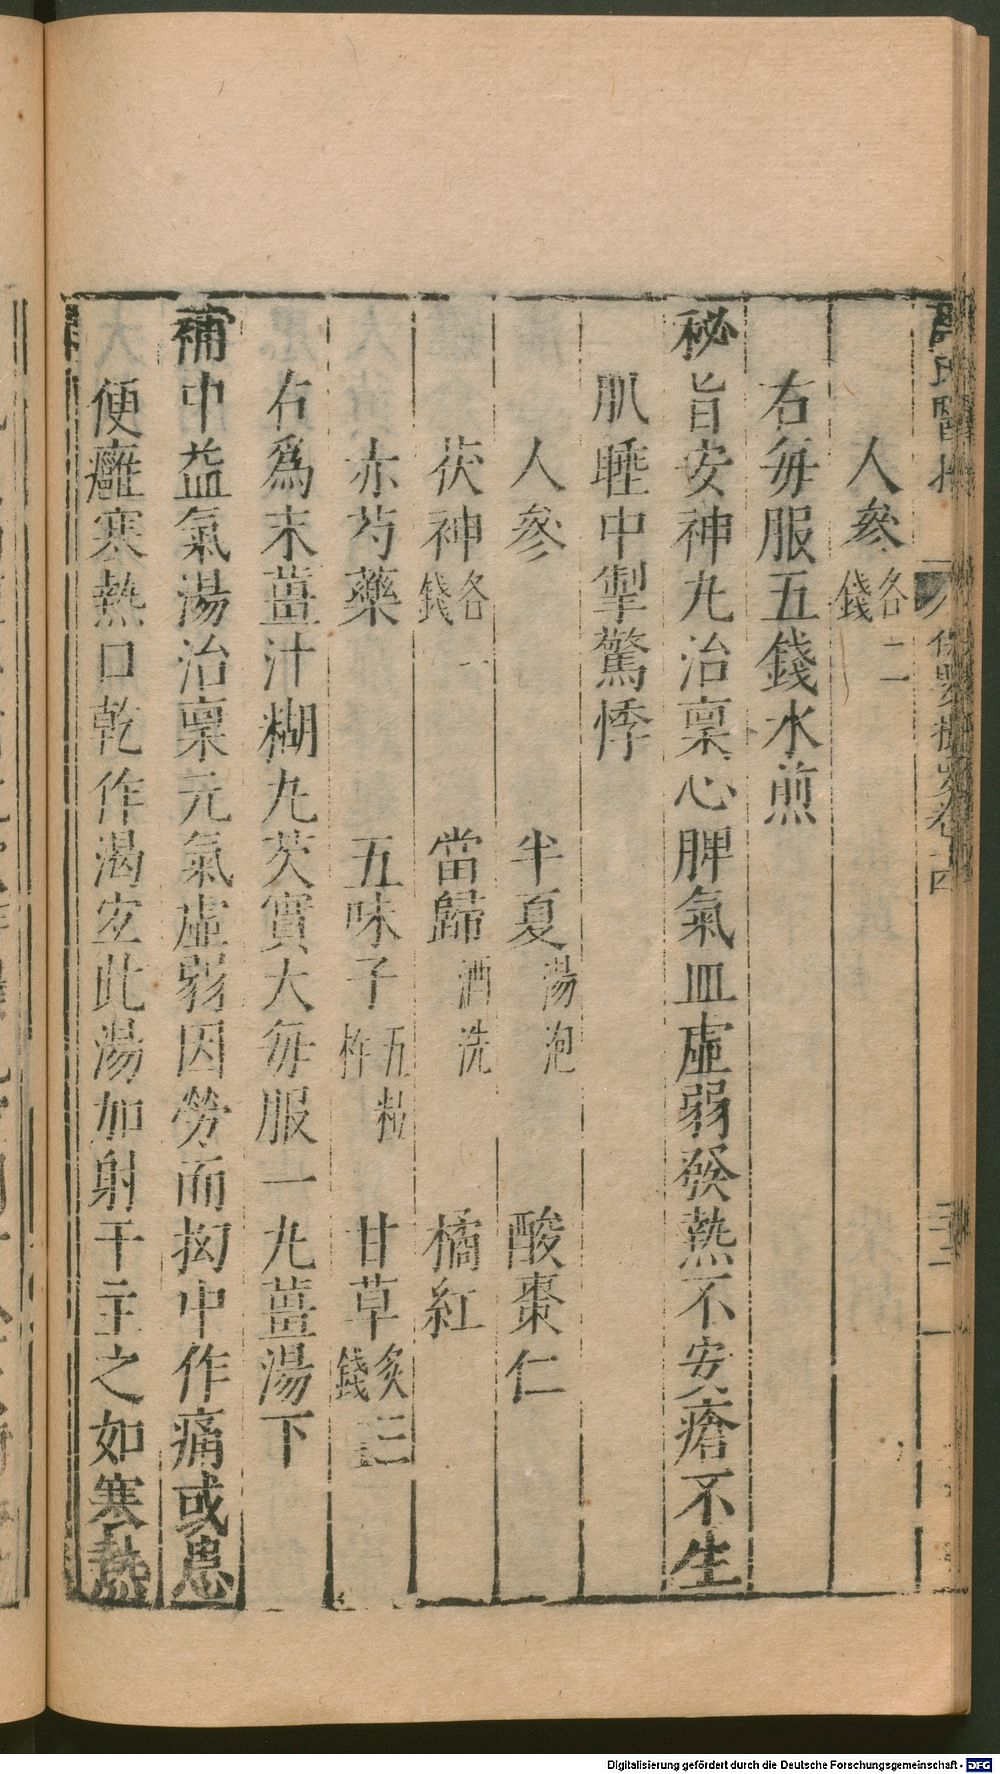 人參各二錢
右每服五錢水煎
秘旨安神丸治稟心脾氣血虛弱發熱不安瘡不生
肌睡中掣驚悸
人參 半夏湯泡 酸棗仁
茯神各一錢 當歸酒洗 橘紅
赤芍藥 五味子五粒杵 甘草炙三錢
右爲末薑汁糊丸芡實大每服一丸薑湯下
補中益氣湯治稟元氣虛弱因勞而拗中作痛或患
便癰寒熱口乾作渴宜此湯加射干主之如寒熱
Digitalisierung gefördert durch die Deutsche Forschungsgemeinschaft - DFG